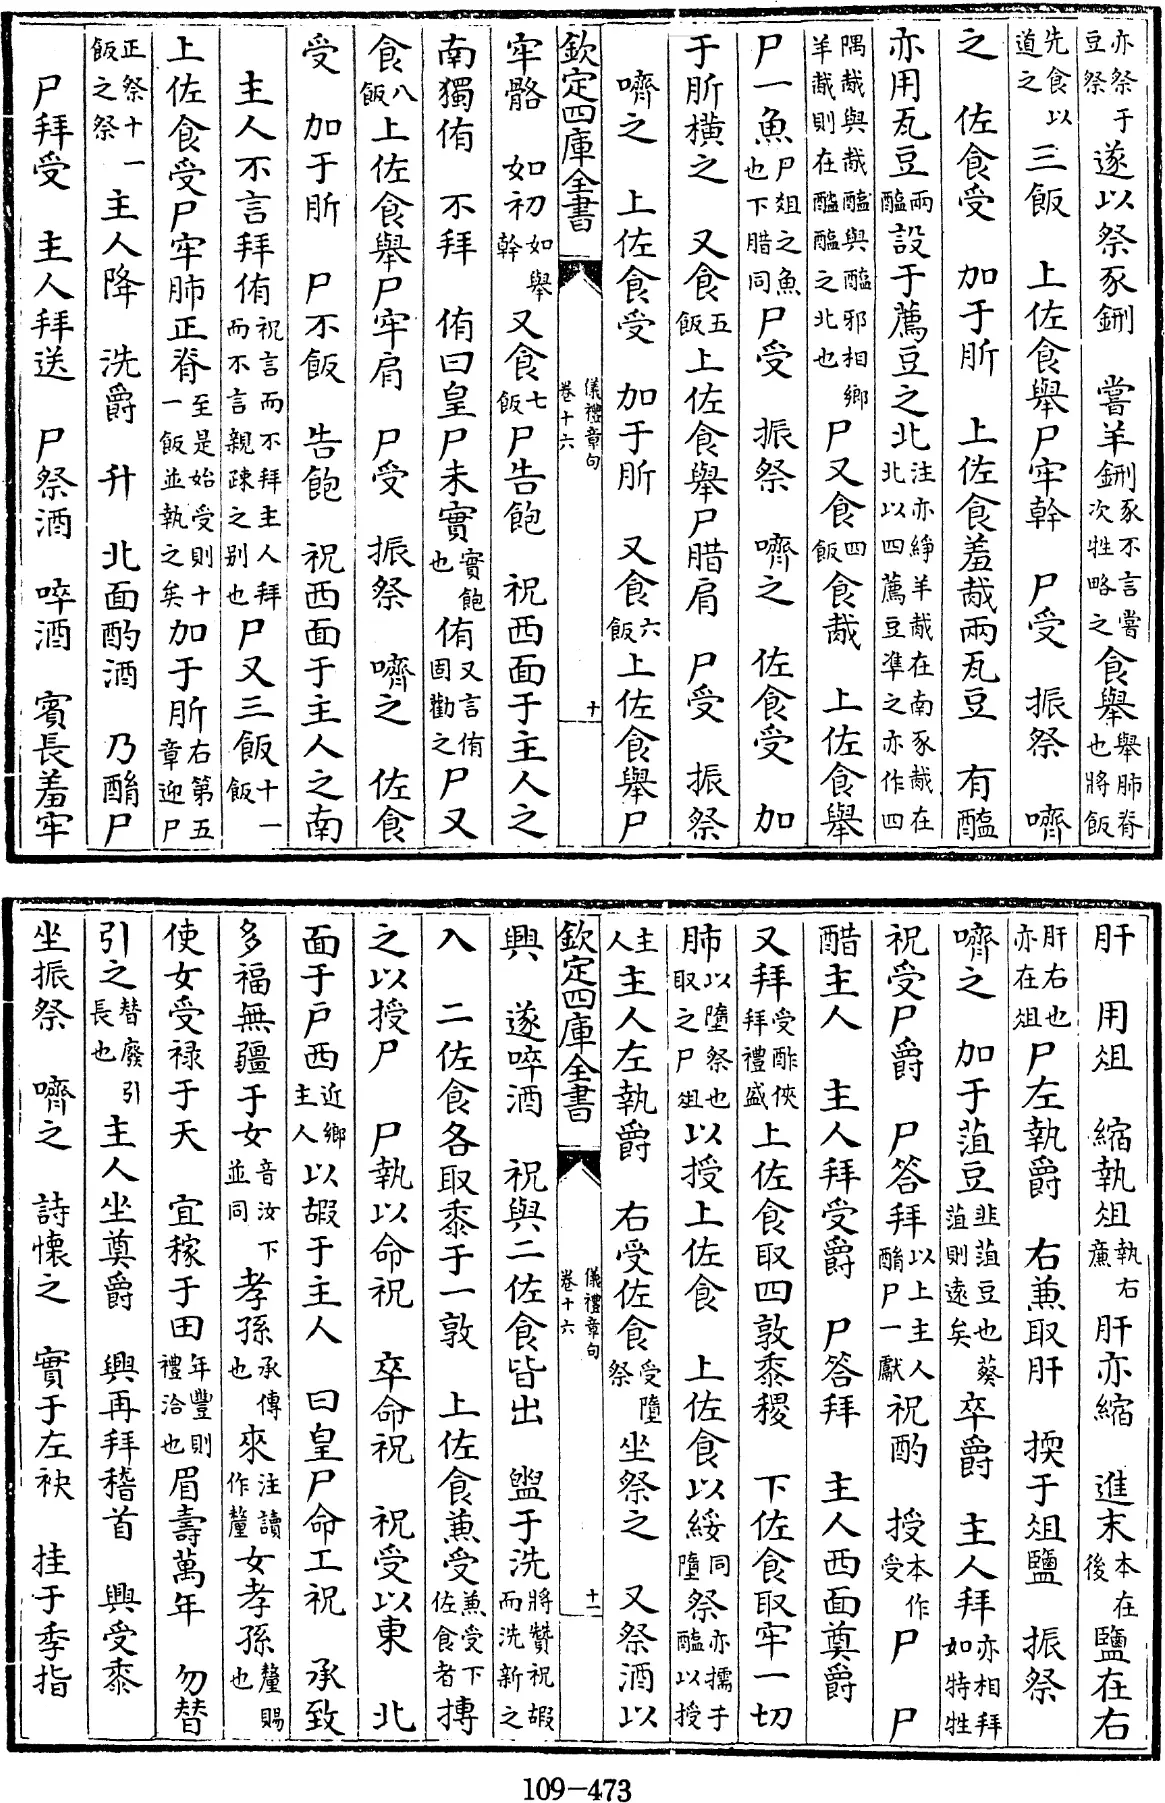 亦祭于豆祭遂以祭豕鉶　嘗羊鉶豕不言嘗次牲略之食舉舉肺脊也將飯
先食以道之三飯　上佐食舉尸牢幹　尸受　振祭　嚌
之　佐食受　加于肵　上佐食羞胾兩瓦豆　有醢
亦用瓦豆兩醢設于薦豆之北注亦綪羊胾在南豕胾在北以四薦豆準之亦作四
隅胾與胾醢與醢邪相鄉羊胾則在醢醢之北也尸又食四飯食胾　上佐食舉
尸一魚尸俎之魚也下腊同尸受　振祭　嚌之　佐食受　加
于肵橫之　又食五飯上佐食舉尸腊肩　尸受　振祭
嚌之　上佐食受　加于肵　又食六飯上佐食舉尸
欽定四庫全書　儀禮章句卷十六　十
牢骼　如初如舉幹又食七飯尸告飽　祝西面于主人之
南獨侑　不拜　侑曰皇尸未實實飽也侑又言侑固勸之尸又
食八飯上佐食舉尸牢肩　尸受　振祭　嚌之　佐食
受　加于肵　尸不飯　告飽　祝西面于主人之南
主人不言拜侑祝言而不拜主人拜而不言親疎之别也尸又三飯十一飯
上佐食受尸牢肺正脊至是始受則十一飯並執之矣加于肵右第五章迎尸
正祭十一飯之祭主人降　洗爵　升　北面酌酒　乃酳尸
尸拜受　主人拜送　尸祭酒　啐酒　賓長羞牢
肝　用俎　縮執俎執右廉肝亦縮　進末本在後鹽在右
肝右也亦在俎尸左執爵　右兼取肝　㨎于俎鹽　振祭
嚌之　加于菹豆韭菹豆也葵菹則遠矣卒爵　主人拜亦相拜如特牲
祝受尸爵　尸答拜以上主人酳尸一獻祝酌　授本作受尸　尸
醋主人　主人拜受爵　尸答拜　主人西面奠爵
又拜受酢俠拜禮盛上佐食取四敦黍稷　下佐食取牢一切
肺以墮祭也取之尸俎以授上佐食　上佐食以綏同墮祭亦擩于醢以授
主人主人左執爵　右受佐食受墮祭坐祭之　又祭酒以
欽定四庫全書　儀禮章句卷十六　十一
興　遂啐酒　祝與二佐食皆出　盥于洗將贊祝嘏而洗新之
入　二佐食各取黍于一敦　上佐食兼受兼受下佐食者摶
之以授尸　尸執以命祝　卒命祝　祝受以東　北
面于戶西近鄉主人以嘏于主人　曰皇尸命工祝　承致
多福無疆于女音汝下並同孝孫承傳也來注讀作釐女孝孫釐賜也
使女受禄于天　宜稼于田年豐則禮洽也眉壽萬年　勿替
引之替廢引長也主人坐奠爵　興再拜稽首　興受黍
坐振祭　嚌之　詩懷之　實于左袂　挂于季指
109-473